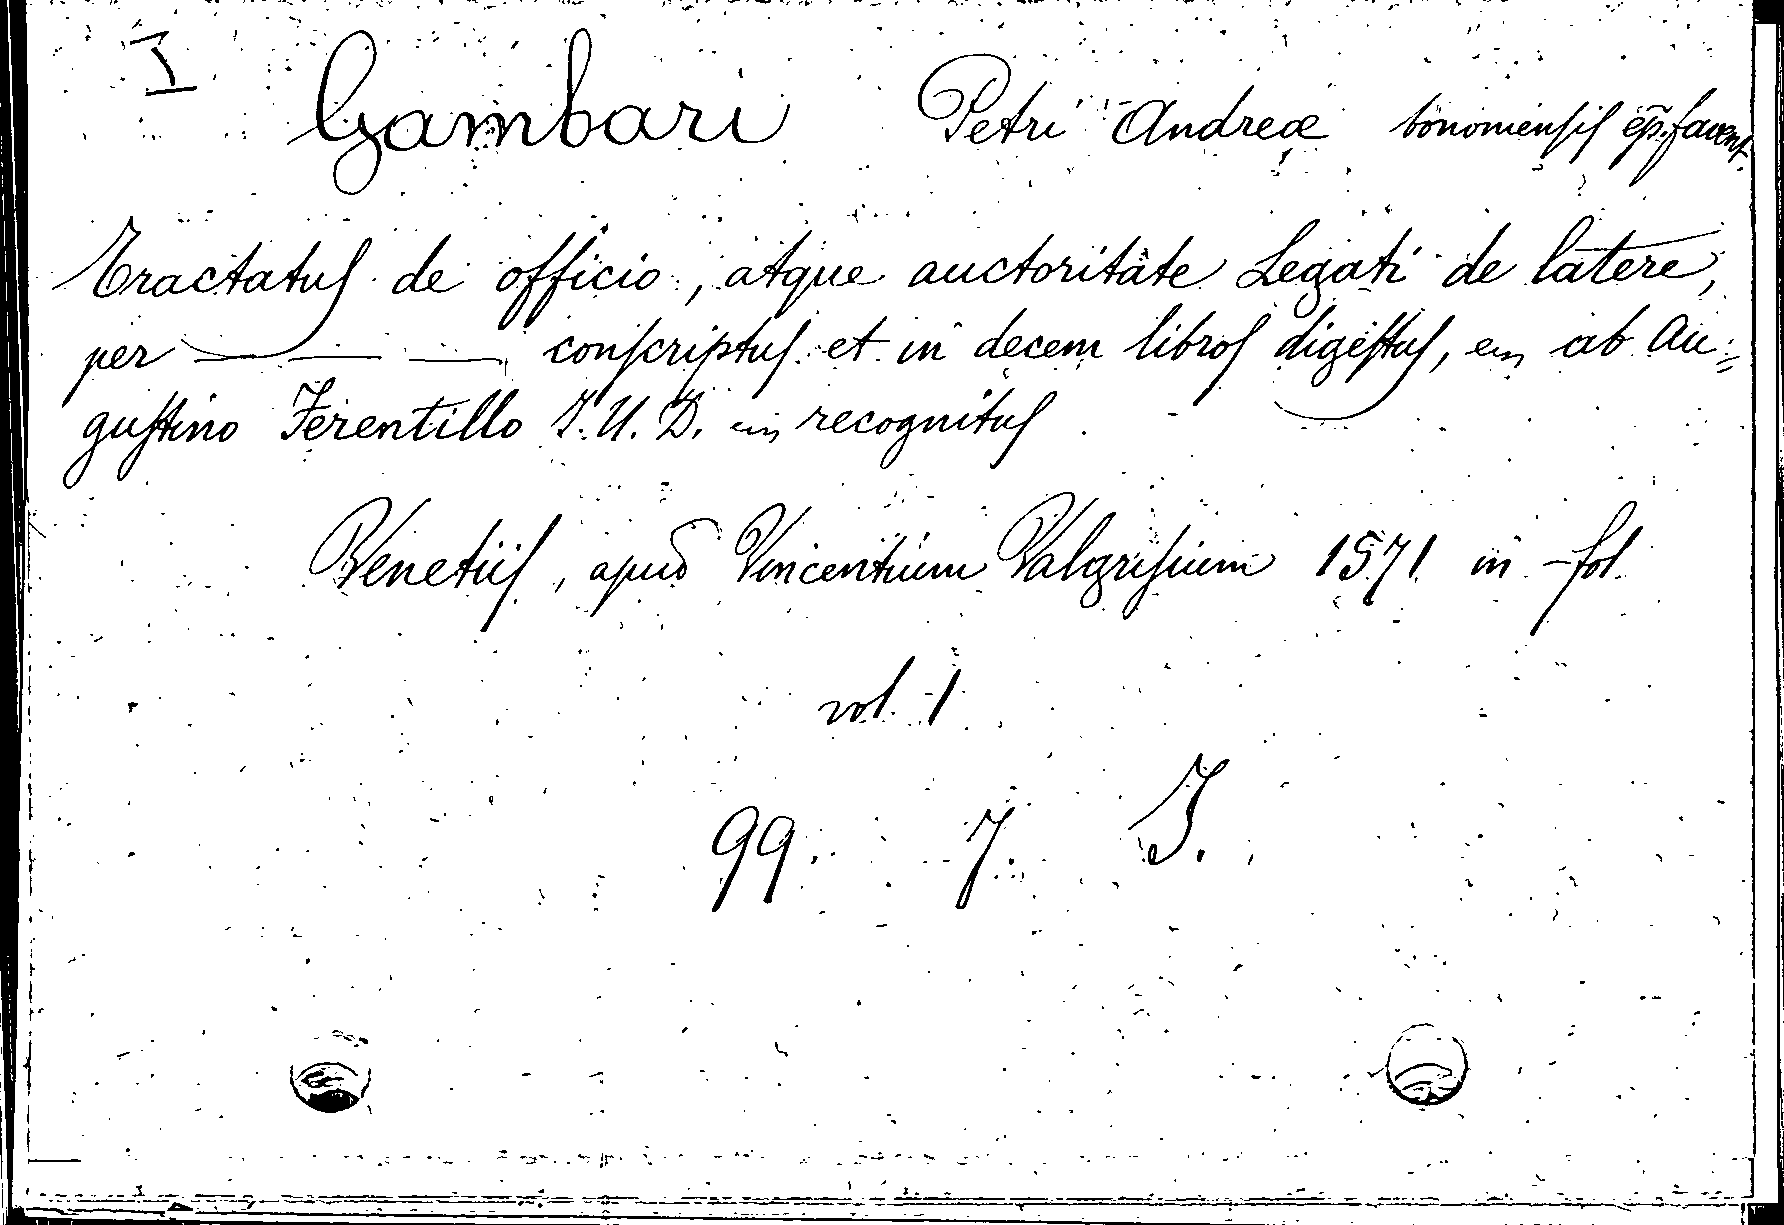 I Gambari Petri Andreæ bononiensis ep̃. favent.
Tractatus de officio, atque auctoritate Legati de latere,
per — — — conscriptus et in decem libros digestus, ab Au=
gustino Ferentillo I. U. D. recognitus
Venetiis, apud Vincentium Valgrisium 1571 in-fol.
vol. 1
99. 7. I.